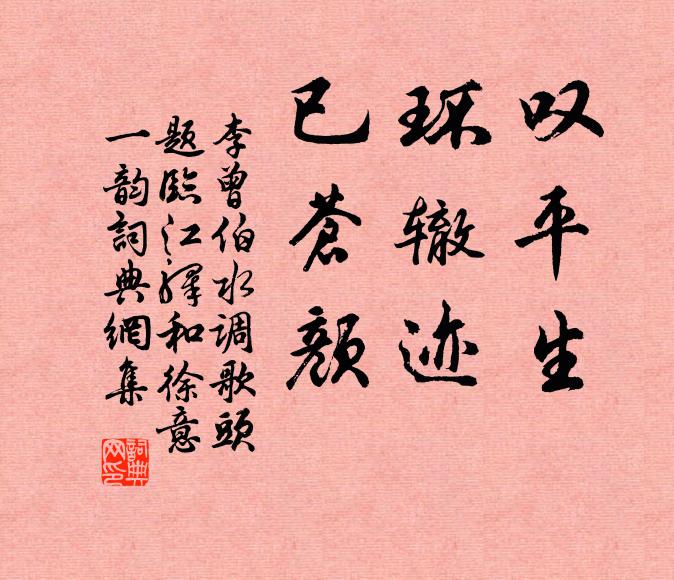 叹平生
环辙迹
已苍颜
李曾伯水调歌头
题临江驿和徐意
一韵词典网集
词典网印